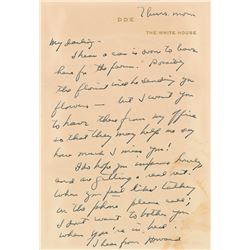 Thurs. morn
DDE
THE WHITE HOUSE
My darling -
I hear a car is soon to leave
here for the farm. Possibly
the florist will be sending you
flowers - but I want you
to have these from my office
so that they may help us say
how much I miss you!
I do hope you improve hourly
and are getting a real rest.
When you feel like talking
on the phone please call;
I don't want to bother you
when you're in bed.
I hear from Howard